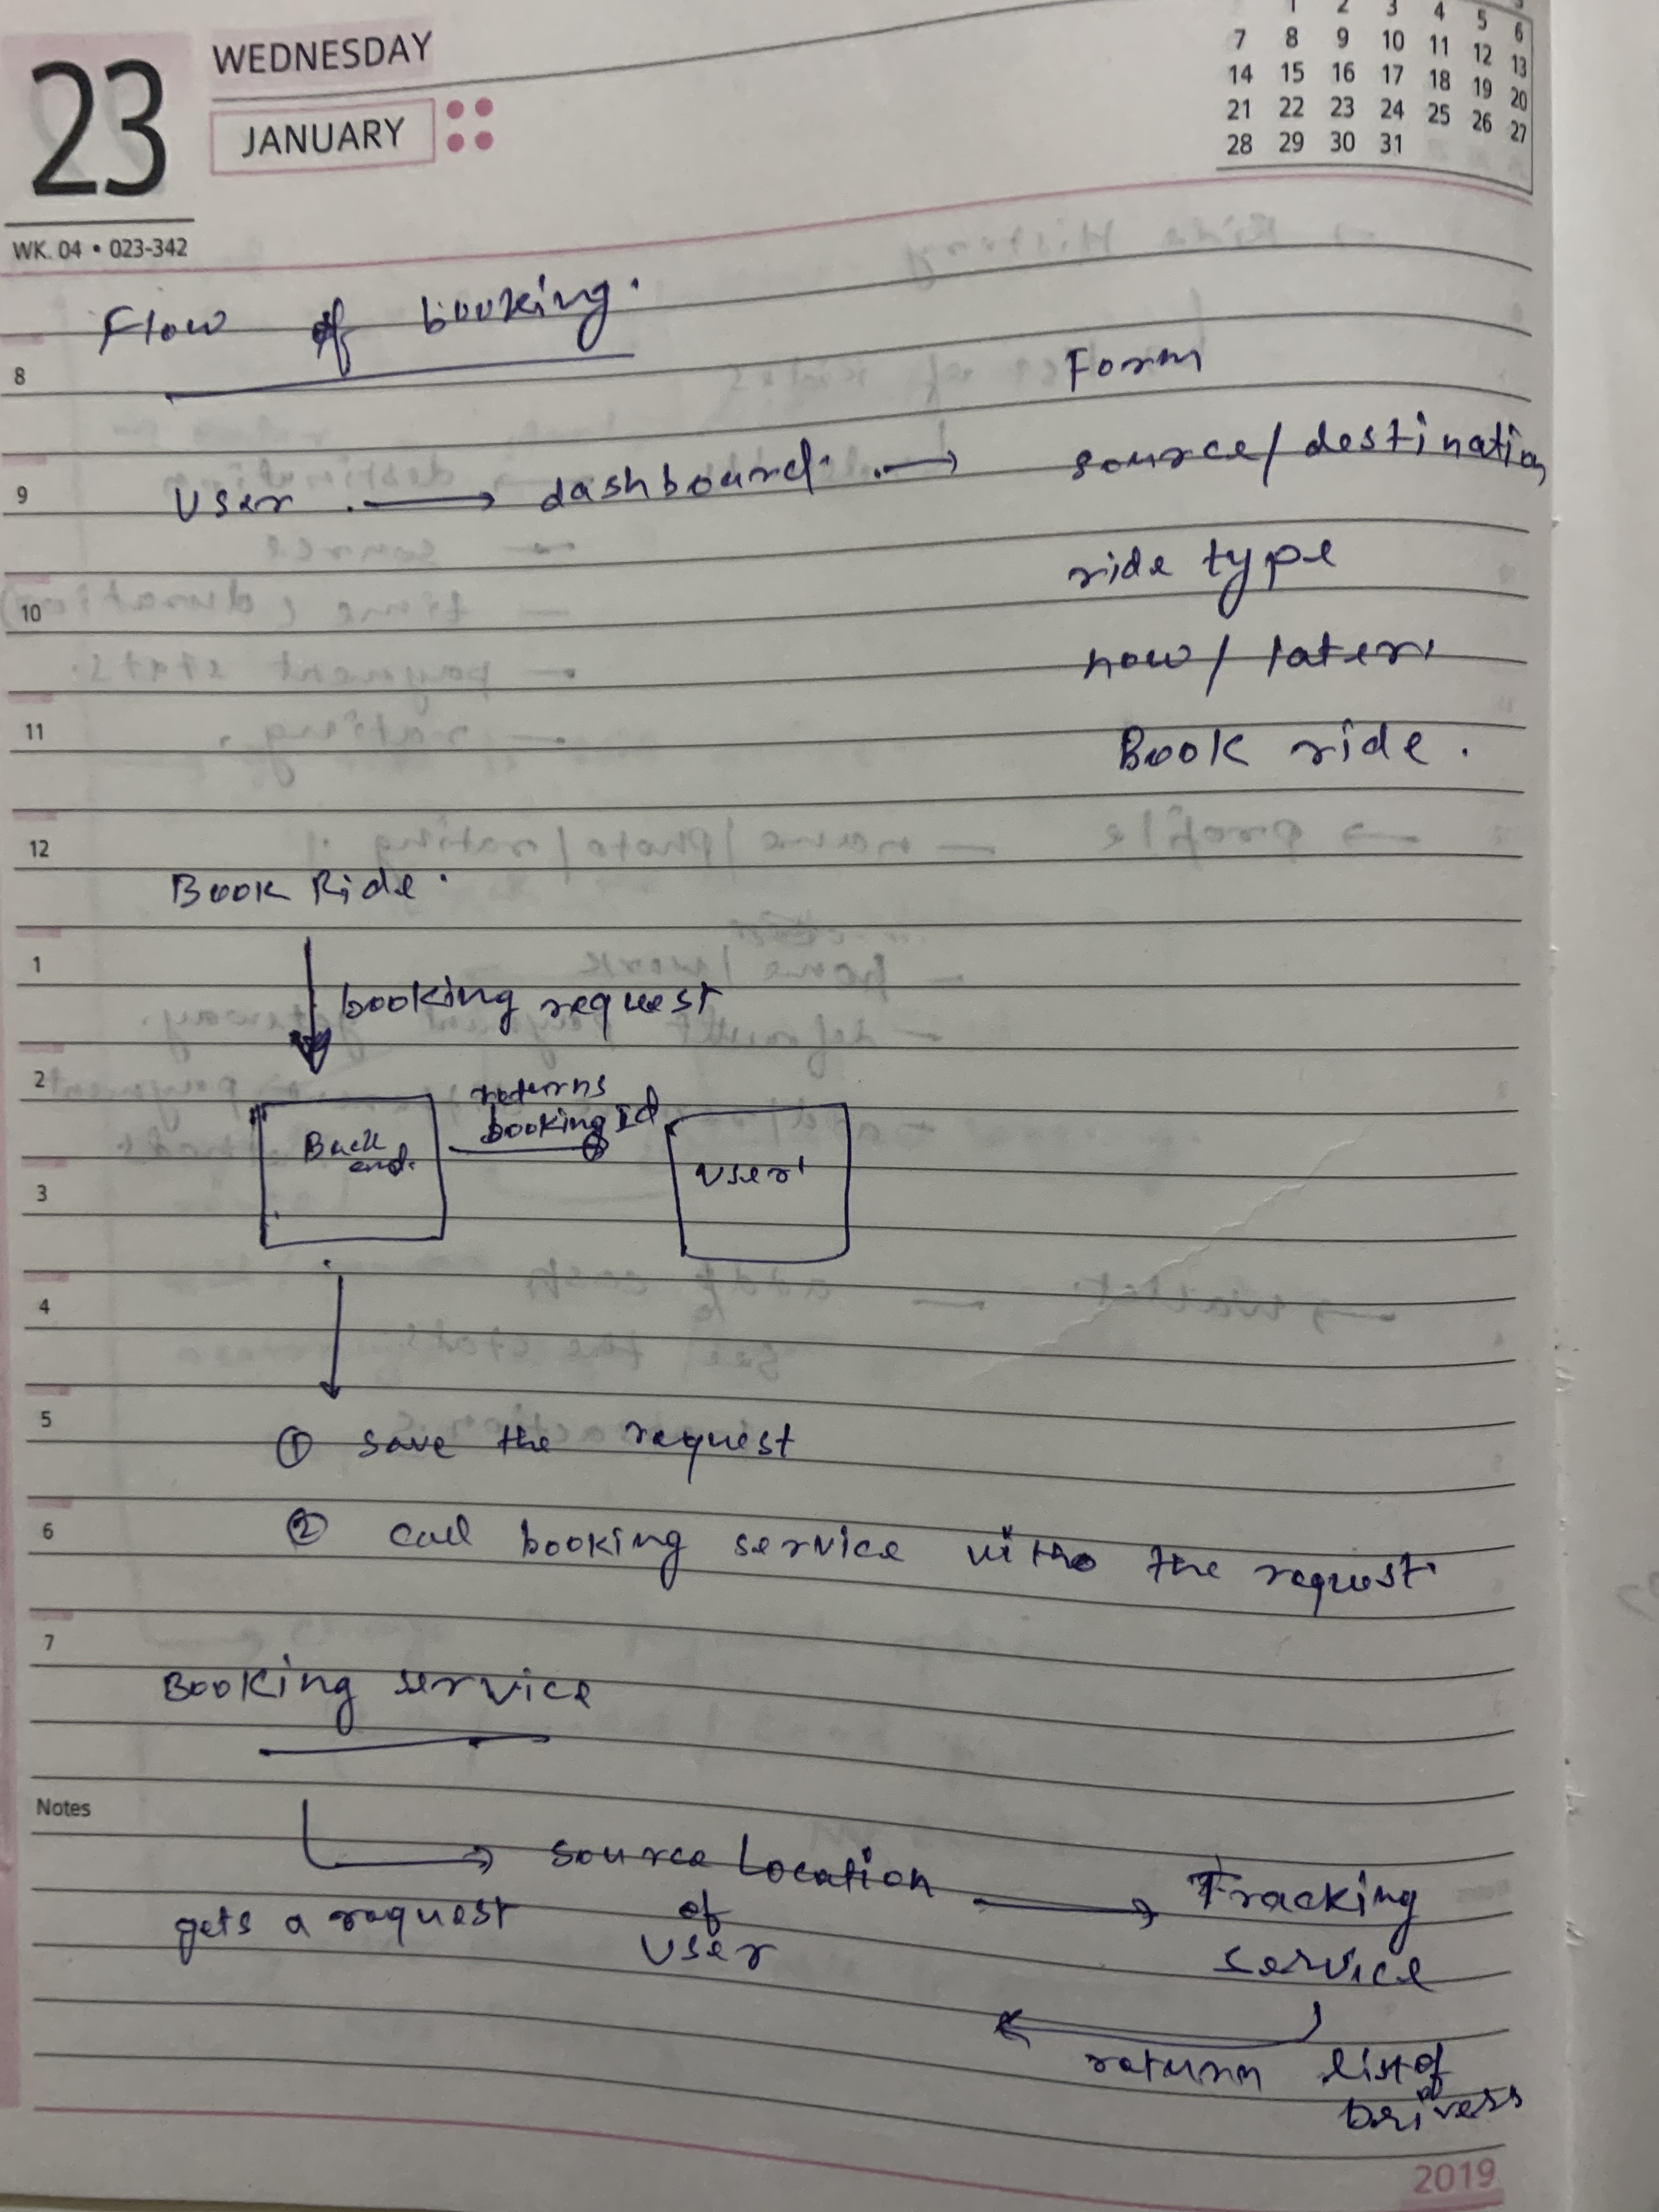 23
WEDNESDAY
JANUARY
WK. 04 • 023-342
1 2 3 4 5 6
7 8 9 10 11 12 13
14 15 16 17 18 19 20
21 22 23 24 25 26 27
28 29 30 31
Flow of booking.
8
Form
9
User → dashboard. → source/destination
ride type
10
now / later.
11
Book ride.
12
Book Ride.
1
booking request
2
returns
booking Id
Back
end.
User
3
4
5
① save the request
6
② call booking service with the request.
7
Booking service
Notes
→ source Location → Tracking
gets a request of
User
service
return list of
Drivers
2019